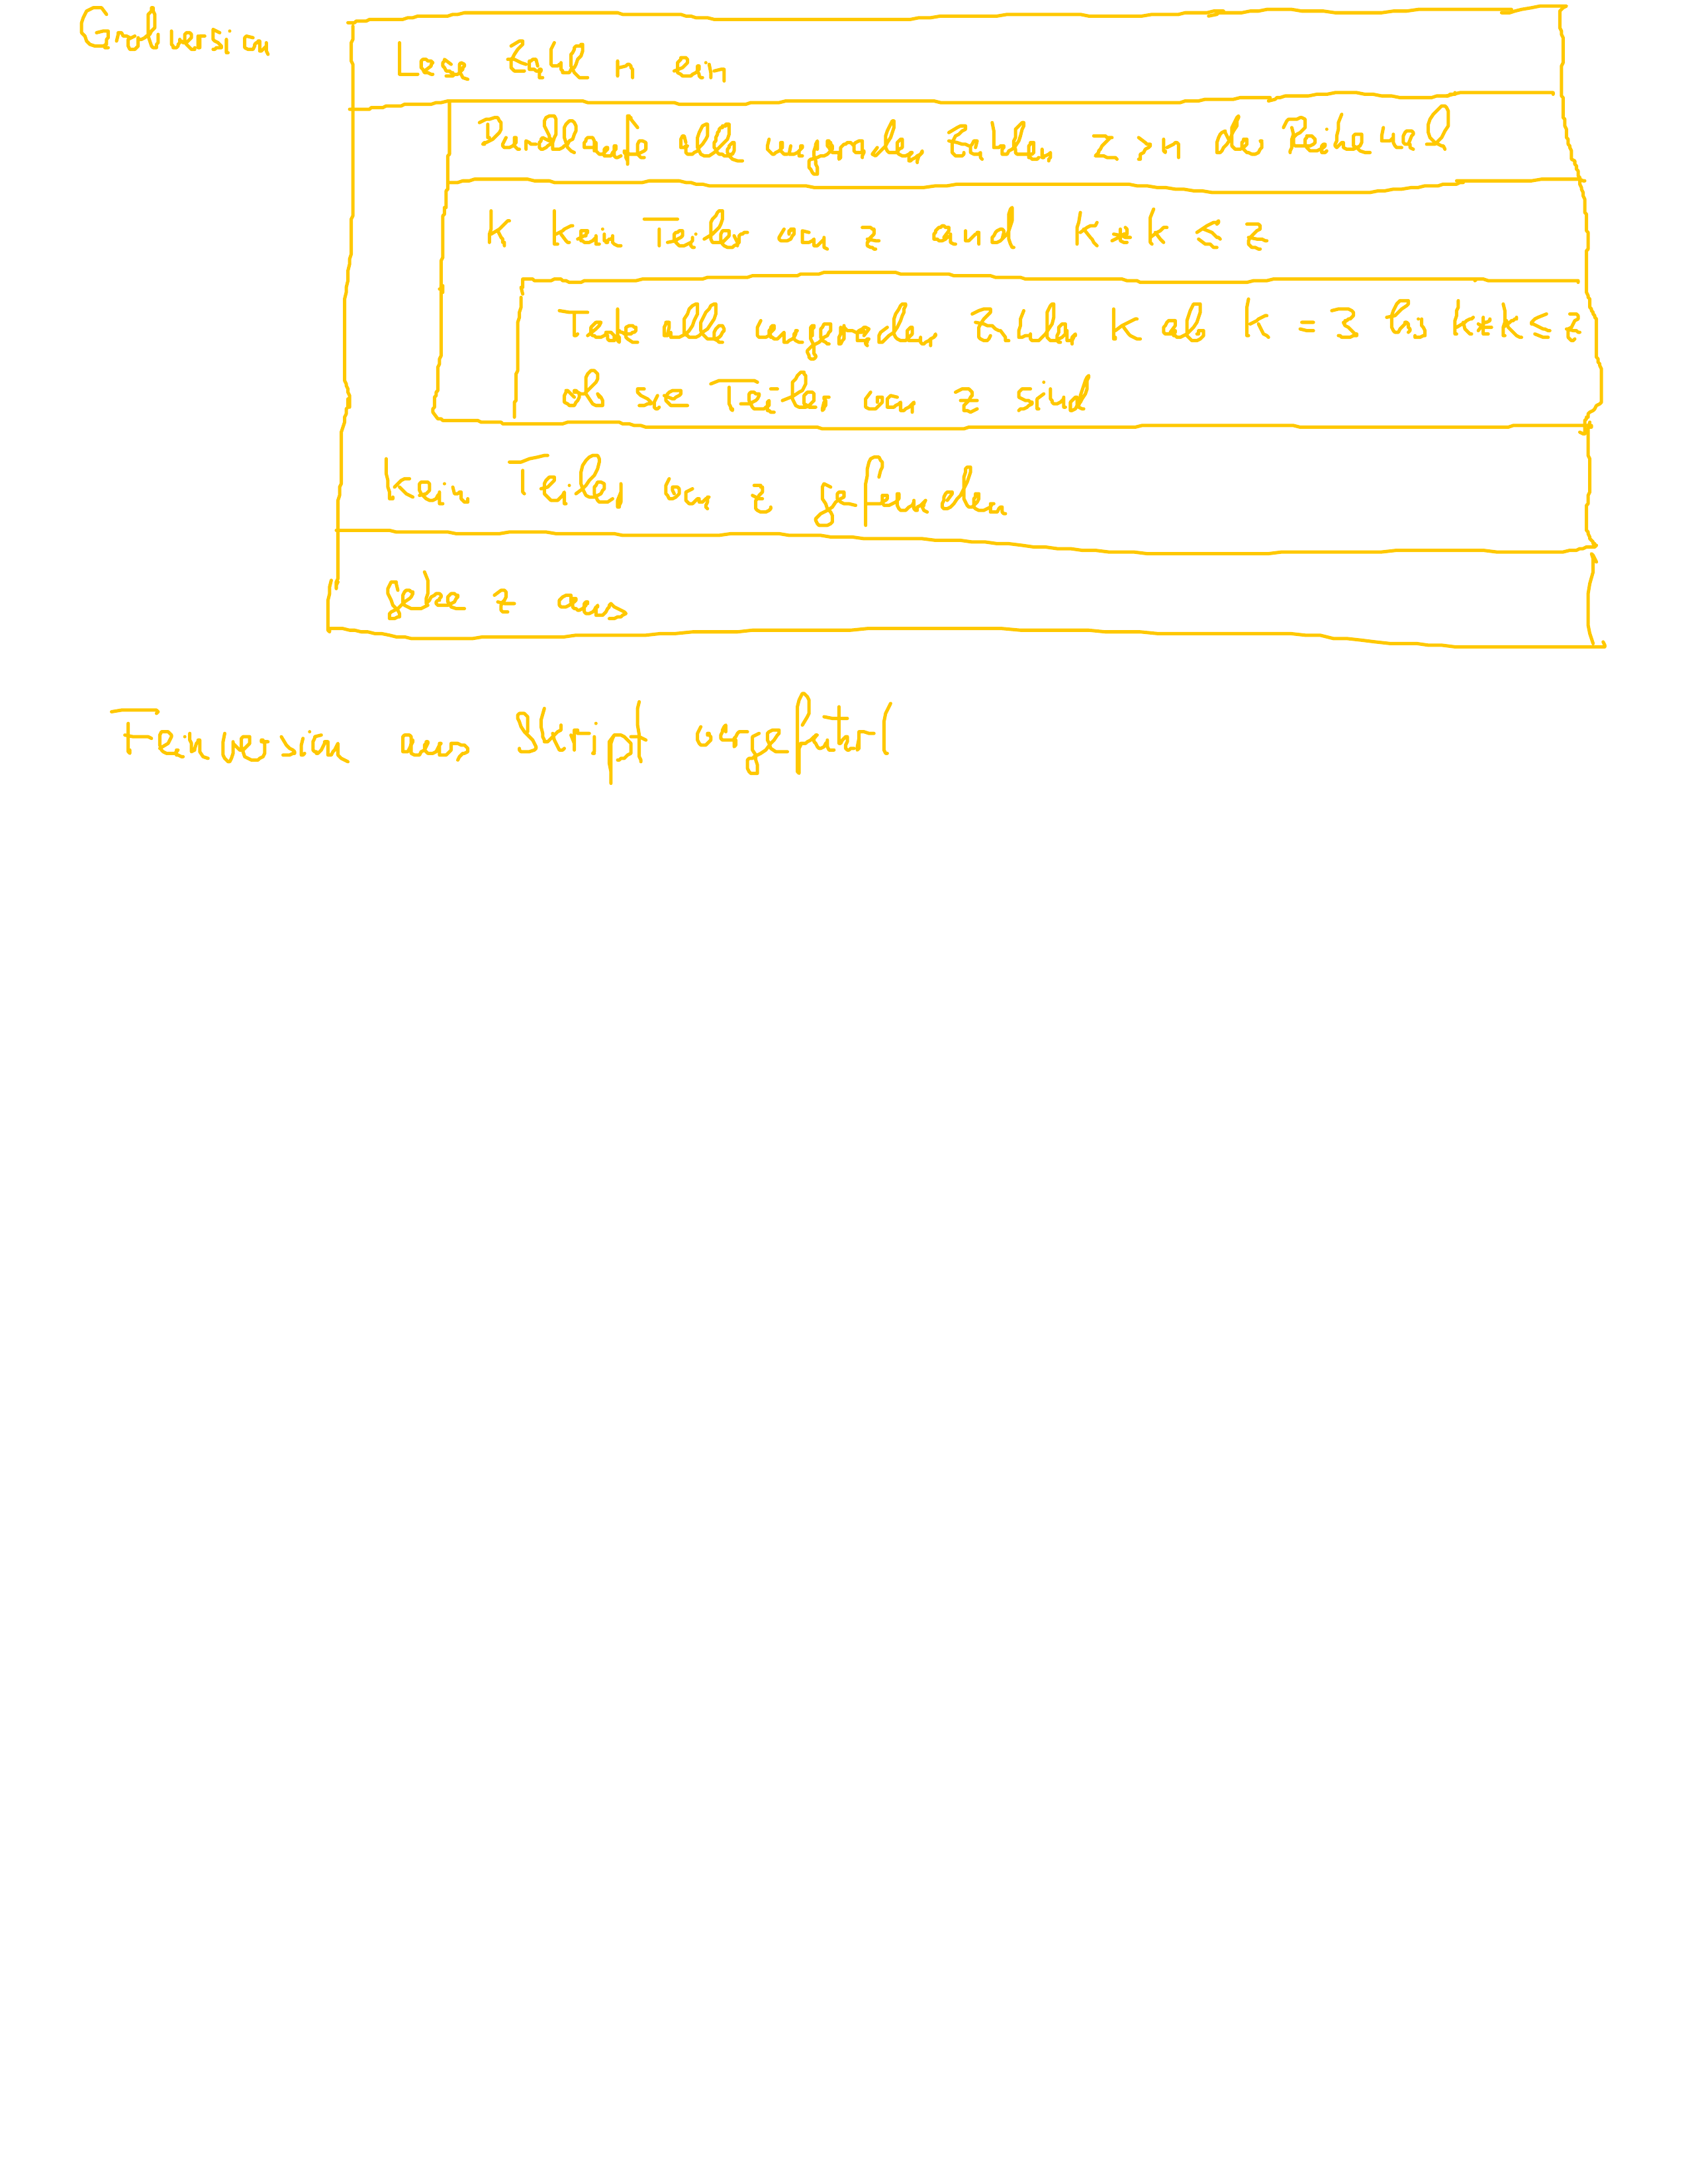 Grobversion
Lese Zahl n ein
Durchlaufe alle ungeraden Zahlen z > n der Reihe nach
k kein Teiler von z und k*k ≤ z
Teste alle ungeraden Zahlen k ab k = 3 bis k*k ≤ z
ob sie Teiler von z sind
kein Teiler von z gefunden
gebe z aus
Feinversion aus Skript